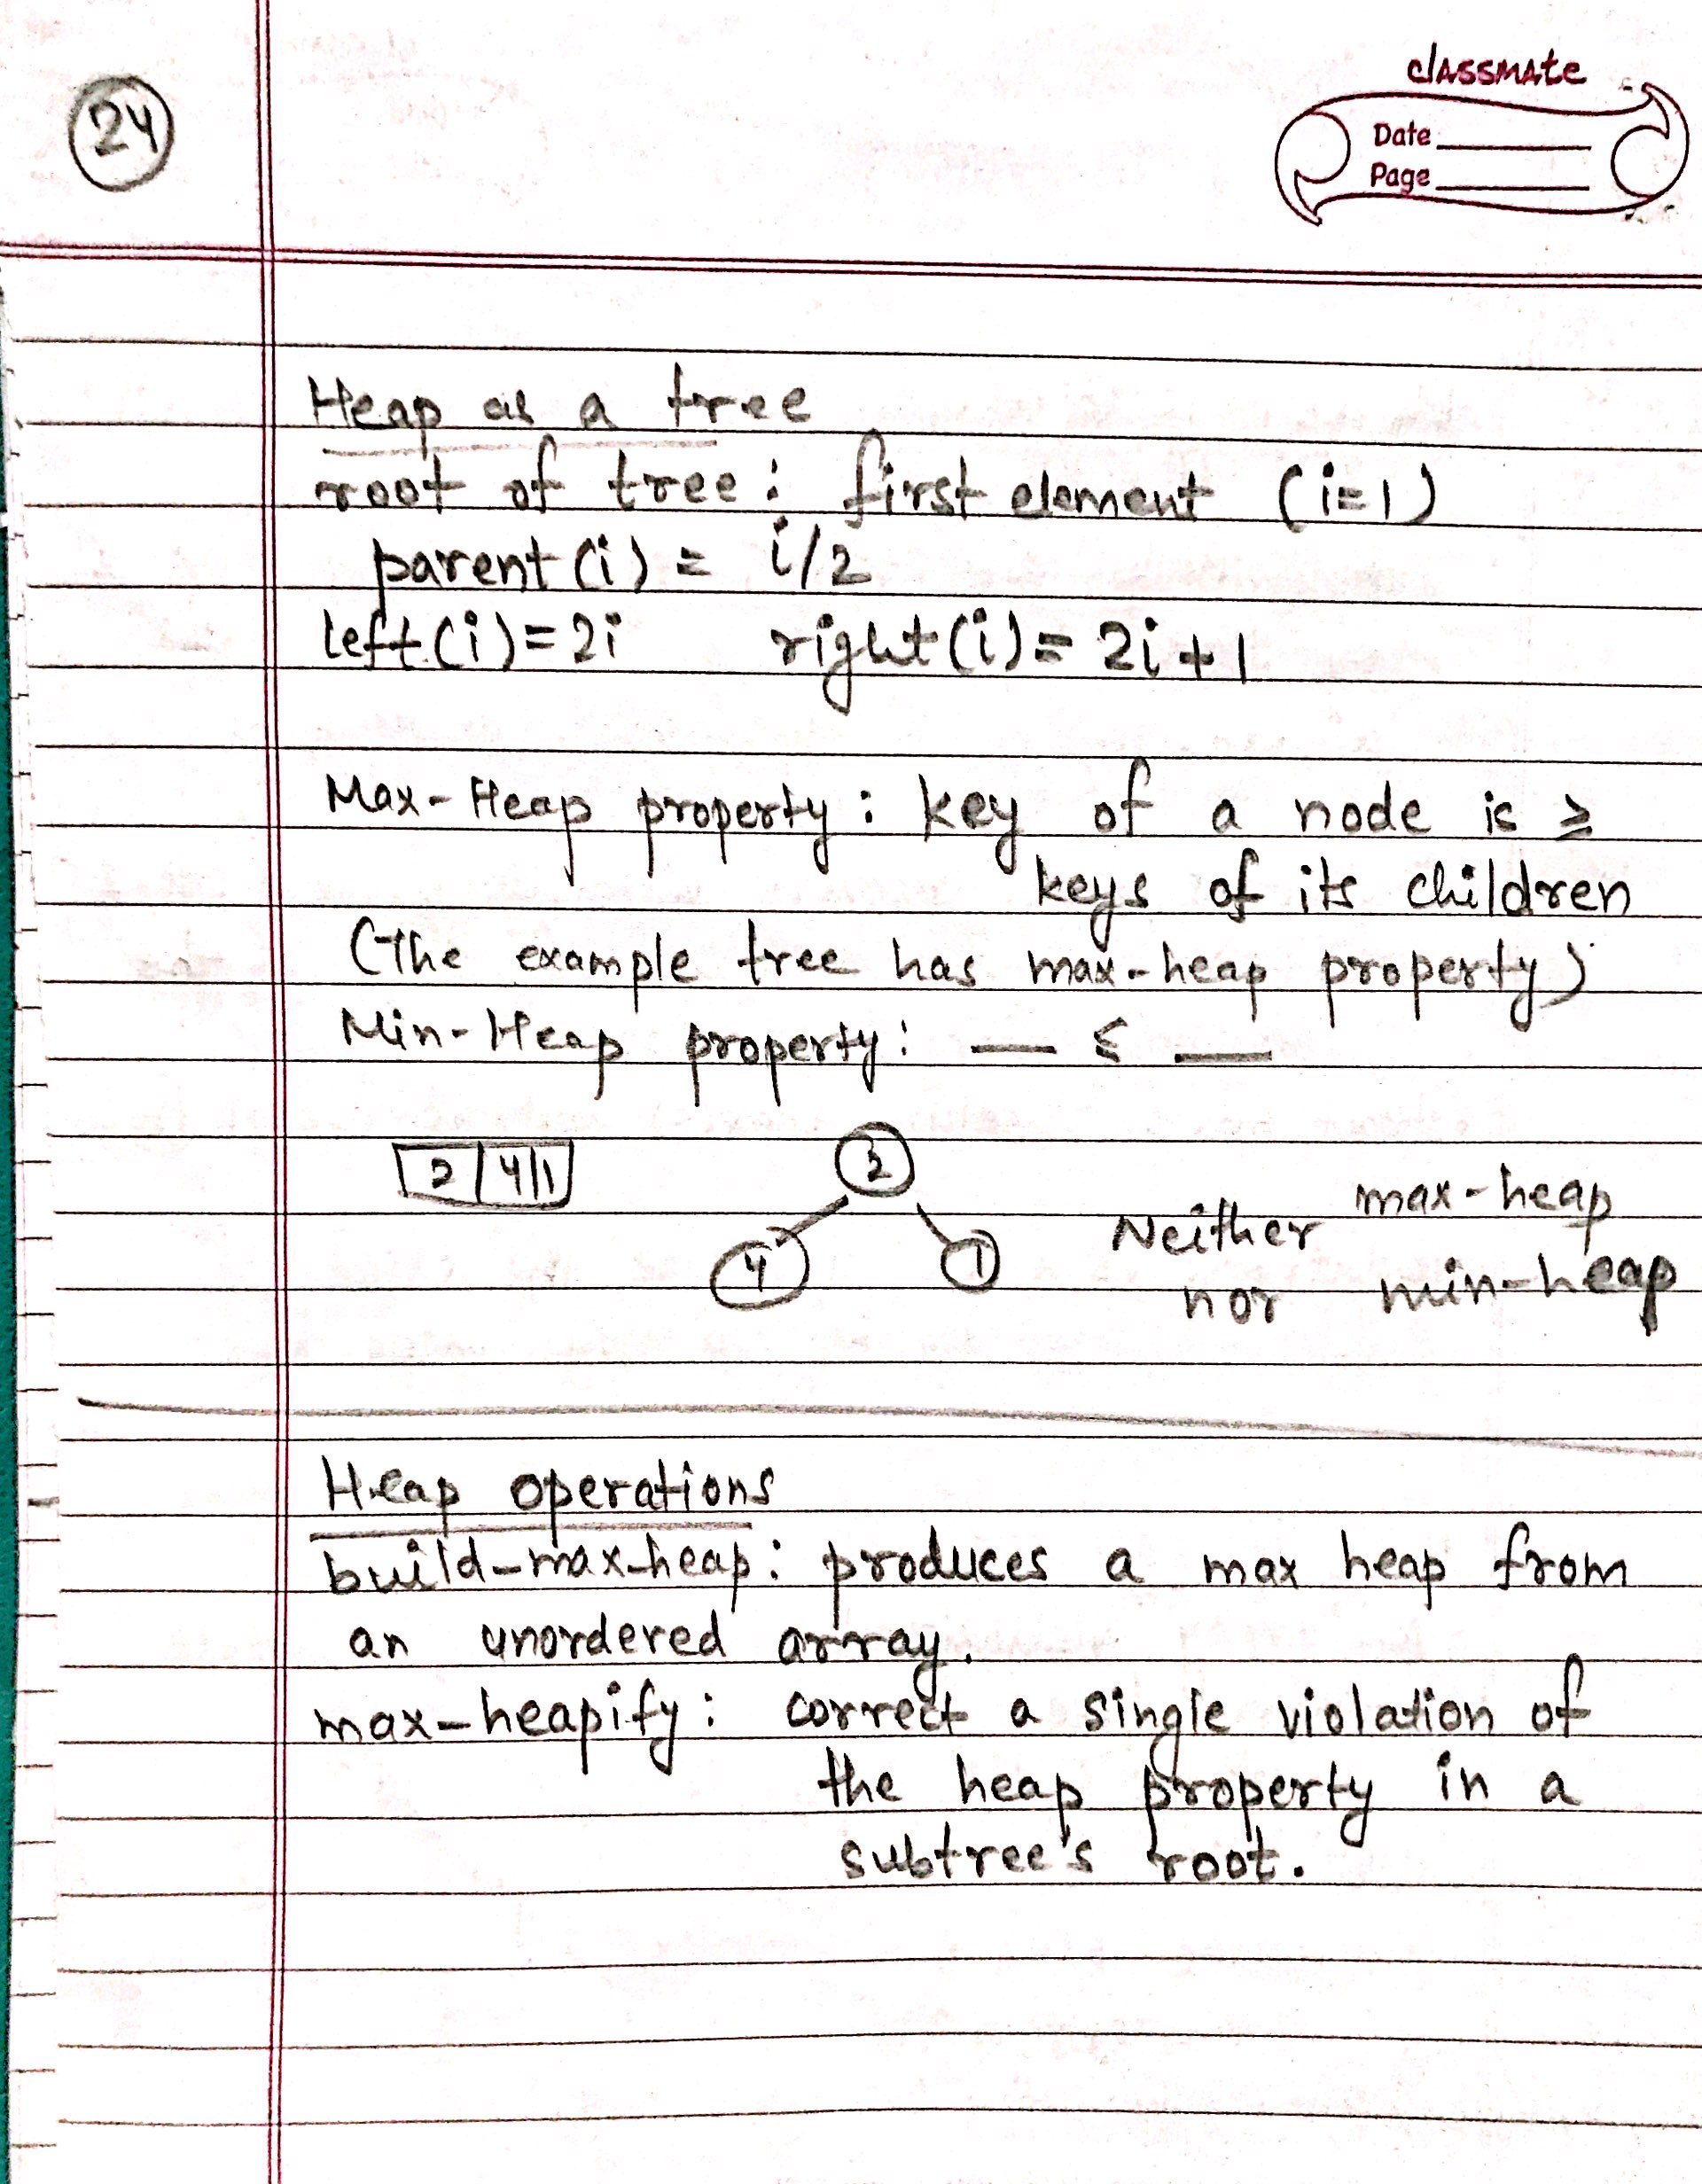 24
classmate
Date
Page
Heap as a tree
root of tree : first element (i=1)
parent(i) = i/2
left(i)=2i right(i)= 2i+1
Max-Heap property : key of a node is ≥
keys of its children
(The example tree has max-heap property)
Min-Heap property: — ≤ —
2 4 1
2
4 1
Neither max-heap
nor min-heap
Heap operations
build-max-heap: produces a max heap from
an unordered array.
max-heapify: correct a single violation of
the heap property in a
subtree's root.